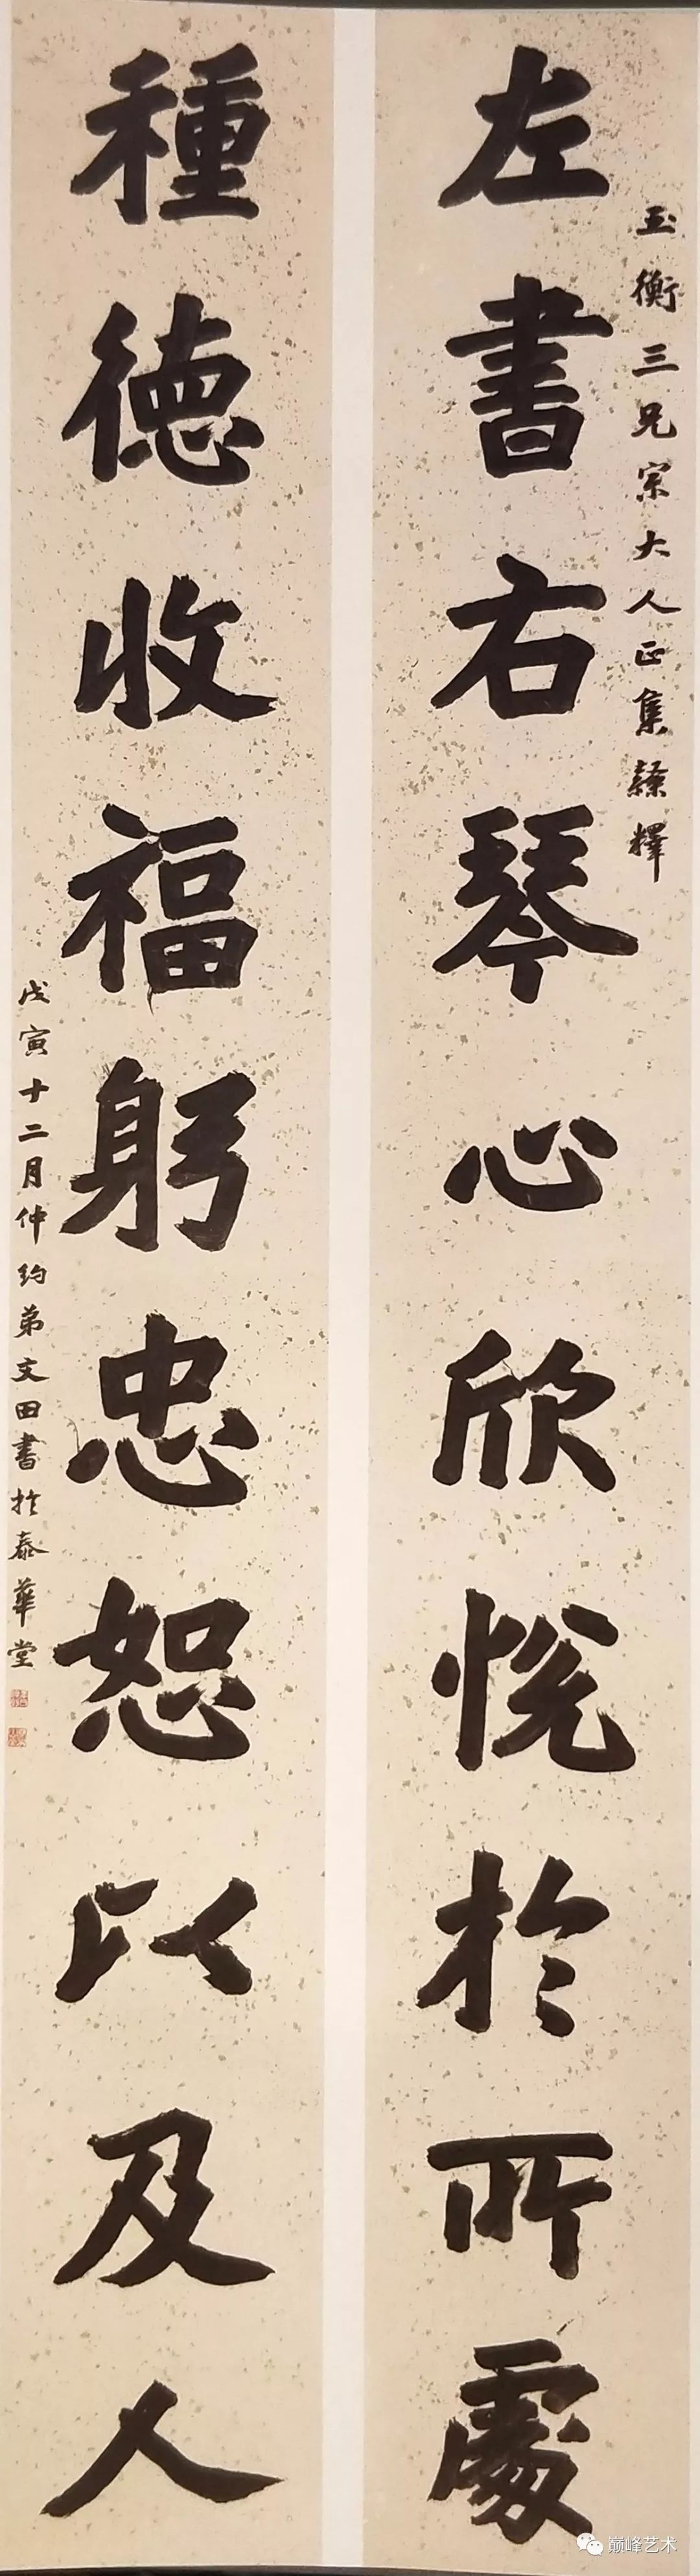 玉衡三兄宗大人正集隸釋
左書右琴心欣悅於所處
種德收福躬忠恕以及人
戊寅十二月仲約弟文田書於泰華堂
巅峰艺术